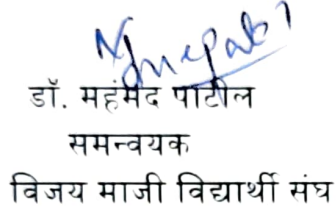 डॉ. महंमद पाटील
समन्वयक
विजय माजी विद्यार्थी संघ